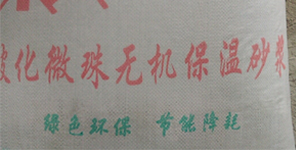 玻化微珠无机保温砂浆
绿色环保 节能降耗